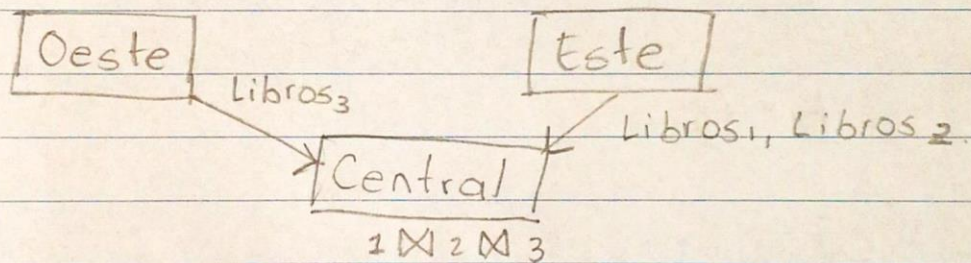 Oeste Este
Libros₃
Libros₁, Libros₂
Central
1 ⋈ 2 ⋈ 3